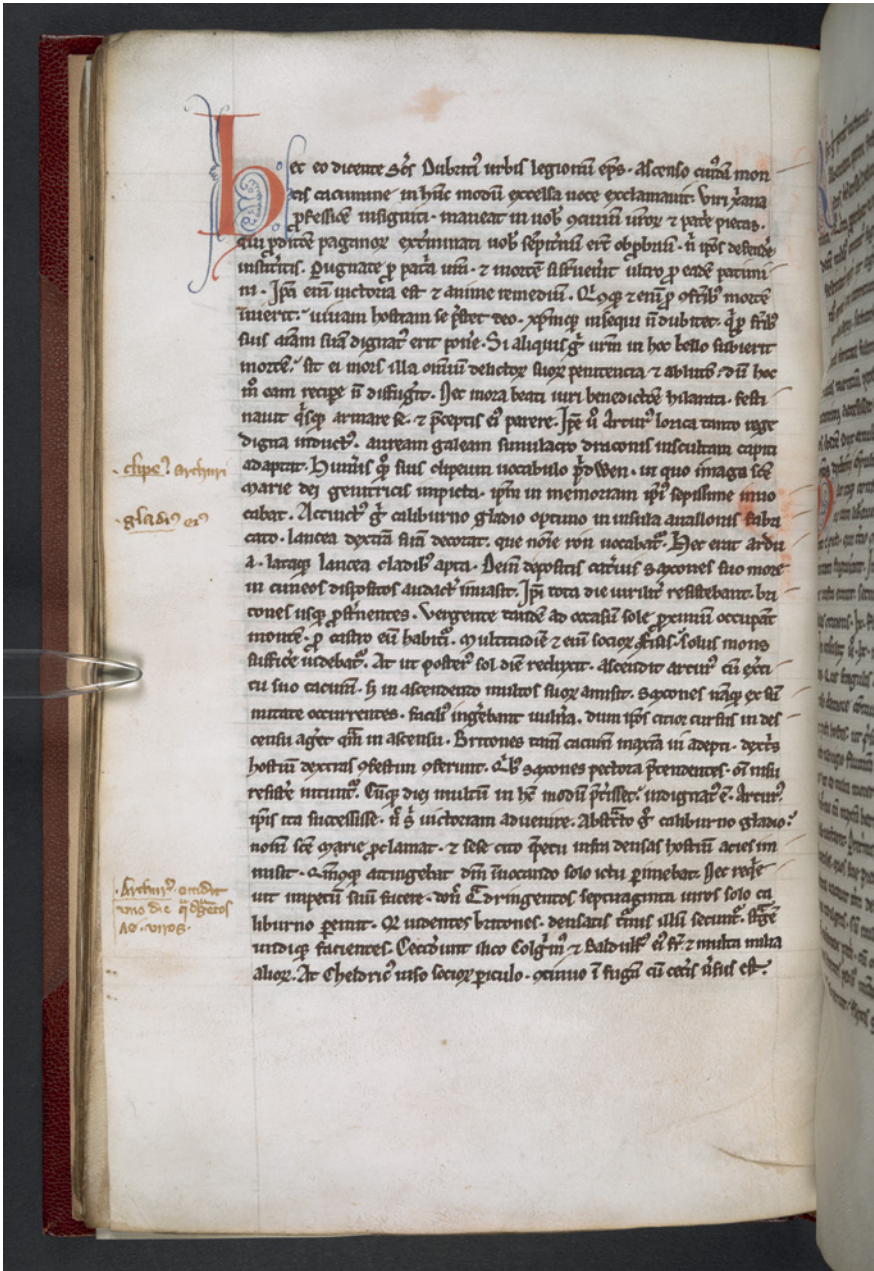 Hec eo dicente scs̄ Dubriciꝰ urbis legionū eps̄. ascenso cuiꝰdā mon
tis cacumine in hūc modū excelsa uoce exclamauit. Viri xp̄iana
ꝓfessiōe insigniti. maneat in uob̄ ꝯciuiū ur̄oꝝ ⁊ patͥe pietas.
qui ꝓditiōe paganoꝝ ext̄minati uob̄ sēpit̄nū erūt obꝓbriū. nͥ ip̄os defendē
institeritis. Pugnate ꝓ patͥa ur̄a. ⁊ mortē si suꝑuen̄it ultro ꝓ eadē patimi
ni. Ip̄a enī uictoria est ⁊ anime remediū. Qͥcūqꝫ ⁊enī ꝓ ꝯfrībꝫ mortē
inierit. uiuam hostiam se p̄stet deo. xp̄mqꝫ insequi n̄ dubitet. qͥ ꝓ frībꝫ
suis aīam suā dignatꝰ erit pone᷑. Si aliquis gͥ ur̄m in hoc bello subierit
mortē. sit ei mors illa om̄iū delictoꝝ suoꝝ penitencia ⁊ ablutō. dū hoc
mͦ eam recipe᷑ n̄ diffugͥit. Nec mora beati uiri benedictōe hilarati. festi
nauit qͥsqꝫ armare se. ⁊ p̄ceptis eiꝰ parere. Ip̄e uͦ Arturꝰ lorica tanto rege
digna indutꝰ. auream galeam simulacro draconis insculptam capiti
adaptat. Humͥis qͦꝫ suis clipeum uocabulo pͥdwen. in quo imago sc̄e
marie dei genitricis impicta. ip̄m in memoriam ip̄iꝰ sepissime reuo
cabat. Accinctꝰ gͥ caliburno gladio optimo in insula auallonis fabri
cato. lancea dext̄am suā decorat. que noīe ron uocabatꝰ. Hec erat ardu
a. lataqꝫ lancea cladibꝫ apta. Dein̄ depositis cat̄uis saxones suo more
in cuneos dispositos audact̄ inuasit. Ip̄i tota die uirilit̄ resistebant. bri
tones usqꝫ ꝓst̄nentes. Vergente tandē ad occasū sole ꝓximū occupāt
montē. ꝓ castro eū habitͥi. Multitudīe ⁊enī socioꝝ ꝯfisi. solus mons
suffice᷑ uidebatꝰ. At ut posterꝰ sol diē reduxit. ascendit arturꝰ cū ex̄ci
tu suo cacum̄. sꝫ in ascendendo multos suoꝝ amisit. Saxones nāqꝫ ex sū
mitate occurrentes. faciliꝰ ing̊ebant uuln̄a. dum ip̄os citior cursus in des
censu aget̄ qͣm in ascensu. Britones tam̄ cacum̄ maxīa ui adepti. dext̄is
hostiū dextras ꝯfestim ꝯferunt. Qͥbꝫ Saxones pectora p̄tendentes. oī nisu
resiste᷑ nitunt᷑. Cūqꝫ diei multū in hūc modū p̄t̄isset. indignatꝰ ē Arturꝰ
ip̄is ita successisse. nͨ sͥ uictoriam aduenire. Abst̄cto gͥ caliburno gladio.
nom̄ sc̄e marie ꝓclamat. ⁊ sese cito īpetu infra densas hostiū acies im
misit. Qͣmcūqꝫ attingebat dm̄ īuocando solo ictu ꝑimebat. Nec req͗e
uit impetū suū facere. donͨ Qͣdringentos septuaginta uiros solo ca
liburno ꝑemit. Qͩ uidentes britones. densatis t̄mis illū secunt᷑. stͣgē
undiqꝫ facientes. Cecid̄unt ilico Colgͥm̄ ⁊ Baldulfꝰ eiꝰ fr̄ ⁊ multa milia
alioꝝ. At Cheldricꝰ uiso socioꝝ ꝑiculo. ꝯtinuo ī fugā cū cet̄is ūsus est.
clipeꝰ Arthuri
gladiꝰ eiꝰ
Arthurꝰ occidit
uno die qͣdgētos
uiros